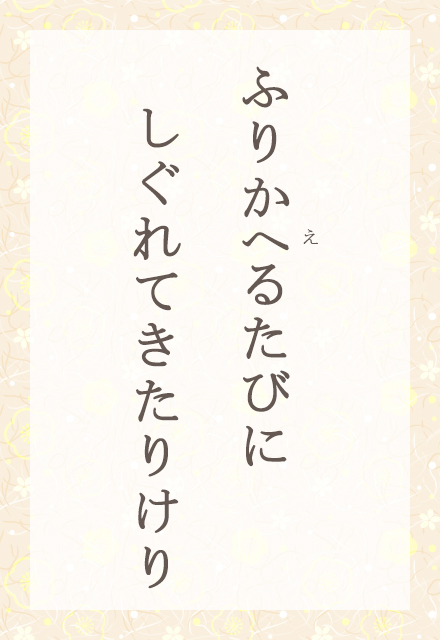 ふりかへるたびに
え
しぐれてきたりけり